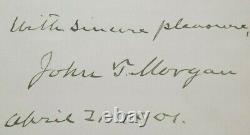 With sincere pleasure,
John T. Morgan
April 2, 1901.